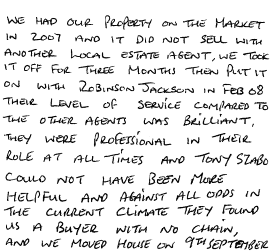 WE HAD OUR PROPERTY ON THE MARKET
IN 2007 AND IT DID NOT SELL WITH
ANOTHER LOCAL ESTATE AGENT, WE TOOK
IT OFF FOR THREE MONTHS THEN PUT IT
ON WITH ROBINSON JACKSON IN FEB 08
THEIR LEVEL OF SERVICE COMPARED TO
THE OTHER AGENTS WAS BRILLIANT,
THEY WERE PROFESSIONAL IN THEIR
ROLE AT ALL TIMES AND TONY SZABO
COULD NOT HAVE BEEN MORE
HELPFUL AND AGAINST ALL ODDS IN
THE CURRENT CLIMATE THEY FOUND
US A BUYER WITH NO CHAIN,
AND WE MOVED HOUSE ON 9TH SEPTEMBER